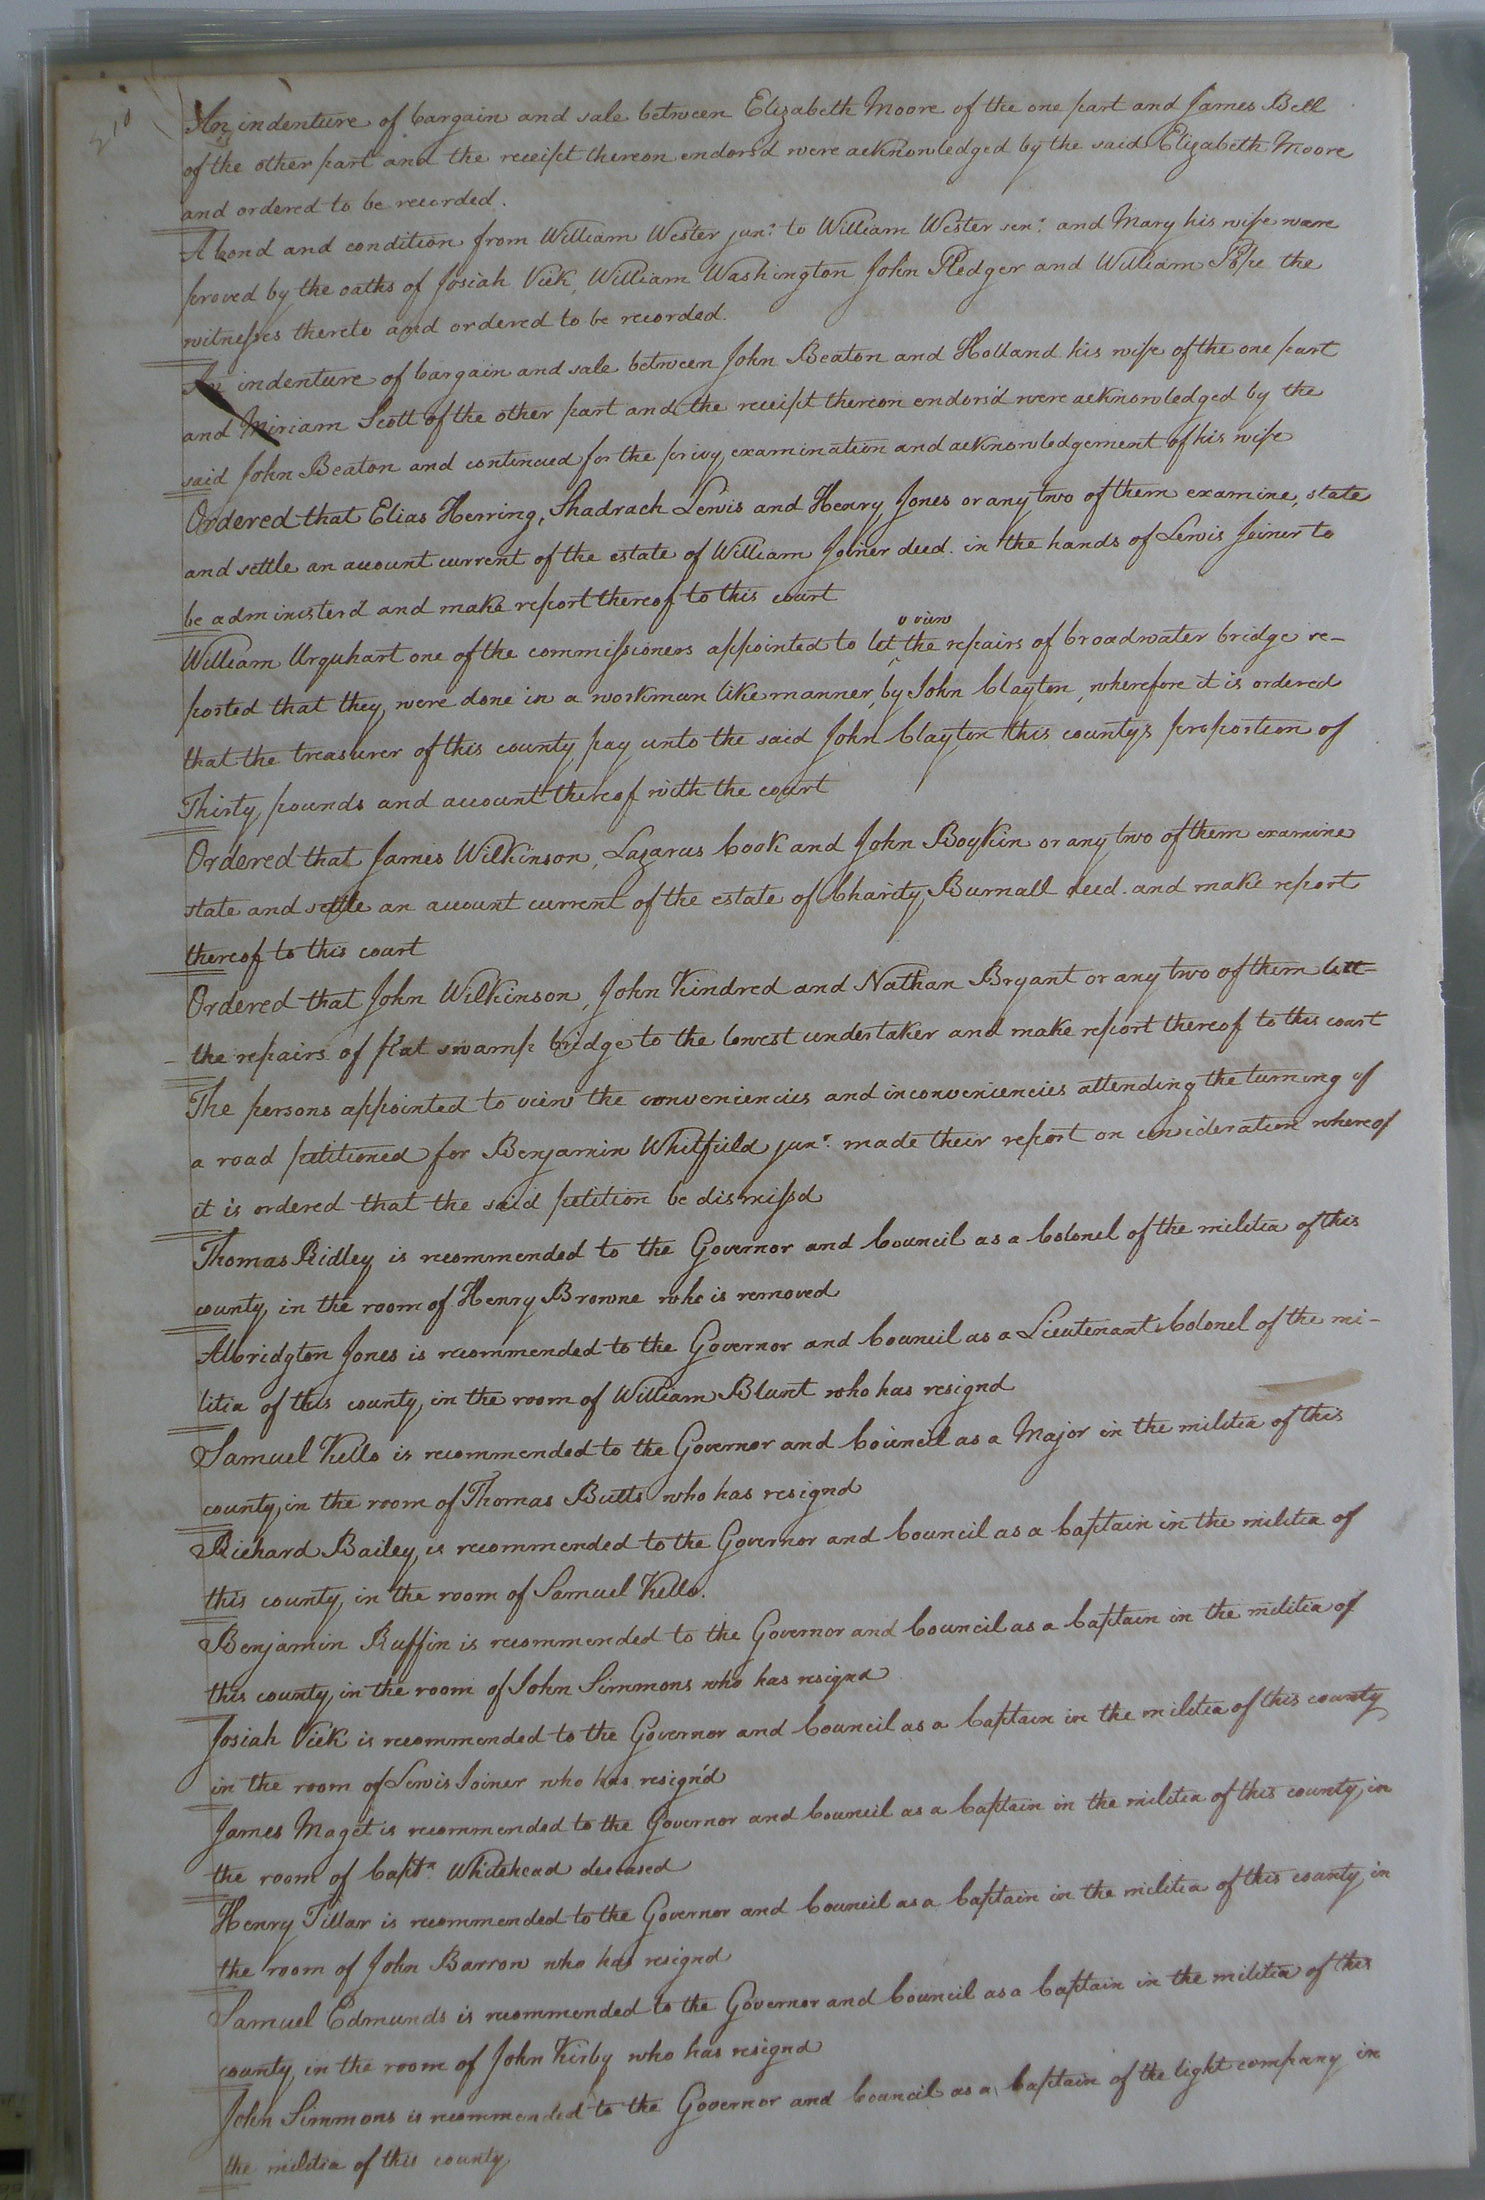 210
An indenture of bargain and sale between Elizabeth Moore of the one part and James Bell
of the other part and the receipt thereon endors'd were acknowledged by the said Elizabeth Moore
and ordered to be recorded.
A bond and condition from William Wester junr. to William Wester senr. and Mary his wife were
proved by the oaths of Josiah Vick, William Washington John Pledger and William Pope the
witnesses thereto and ordered to be recorded.
An indenture of bargain and sale between John Beaton and Holland his wife of the one part
and Miriam Scott of the other part and the receipt thereon endors'd were acknowledged by the
said John Beaton and continued for the privy examination and acknowledgement of his wife
Ordered that Elias Herring, Shadrach Lewis and Henry Jones or any two of them examine, state
and settle an account current of the estate of William Joiner decd. in the hands of Lewis Joiner to
be administer'd and make report thereof to this court
William Urquhart one of the commissioners appointed to let & view the repairs of broadwater bridge re-
ported that they were done in a workman like manner, by John Clayton, wherefore it is ordered
that the treasurer of this county pay unto the said John Clayton this county's proportion of
Thirty pounds and account thereof with the court
Ordered that James Wilkinson, Lazarus Cook and John Boykin or any two of them examine
state and settle an account current of the estate of Charity Burnall decd. and make report
thereof to this court
Ordered that John Wilkinson, John Kindred and Nathan Bryant or any two of them lett
the repairs of flat swamp bridge to the lowest undertaker and make report thereof to this court
The persons appointed to view the conveniencies and inconveniencies attending the turning of
a road petitioned for Benjamin Whitfield junr. made their report on consideration whereof
it is ordered that the said petition be dismissd
Thomas Ridley is recommended to the Governor and Council as a Colonel of the militia of this
county in the room of Henry Browne who is removed
Albridgton Jones is recommended to the Governor and Council as a Lieutenant Colonel of the mi-
litia of this county in the room of William Blunt who has resignd
Samuel Kello is recommended to the Governor and Council as a Major in the militia of this
county in the room of Thomas Butts who has resignd
Richard Bailey is recommended to the Governor and Council as a Captain in the militia of
this county in the room of Samuel Kello.
Benjamin Ruffin is recommended to the Governor and Council as a Captain in the militia of
this county in the room of John Simmons who has resignd
Josiah Vick is recommended to the Governor and Council as a Captain in the militia of this county
in the room of Lewis Joiner who has resign'd
James Maget is recommended to the Governor and Council as a Captain in the militia of this county in
the room of Captn. Whitehead deceased
Henry Tillar is recommended to the Governor and Council as a Captain in the militia of this county in
the room of John Barrow who has resignd
Samuel Edmunds is recommended to the Governor and Council as a Captain in the militia of this
county in the room of John Kirby who has resignd
John Simmons is recommended to the Governor and Council as a Captain of the light company in
the militia of this county